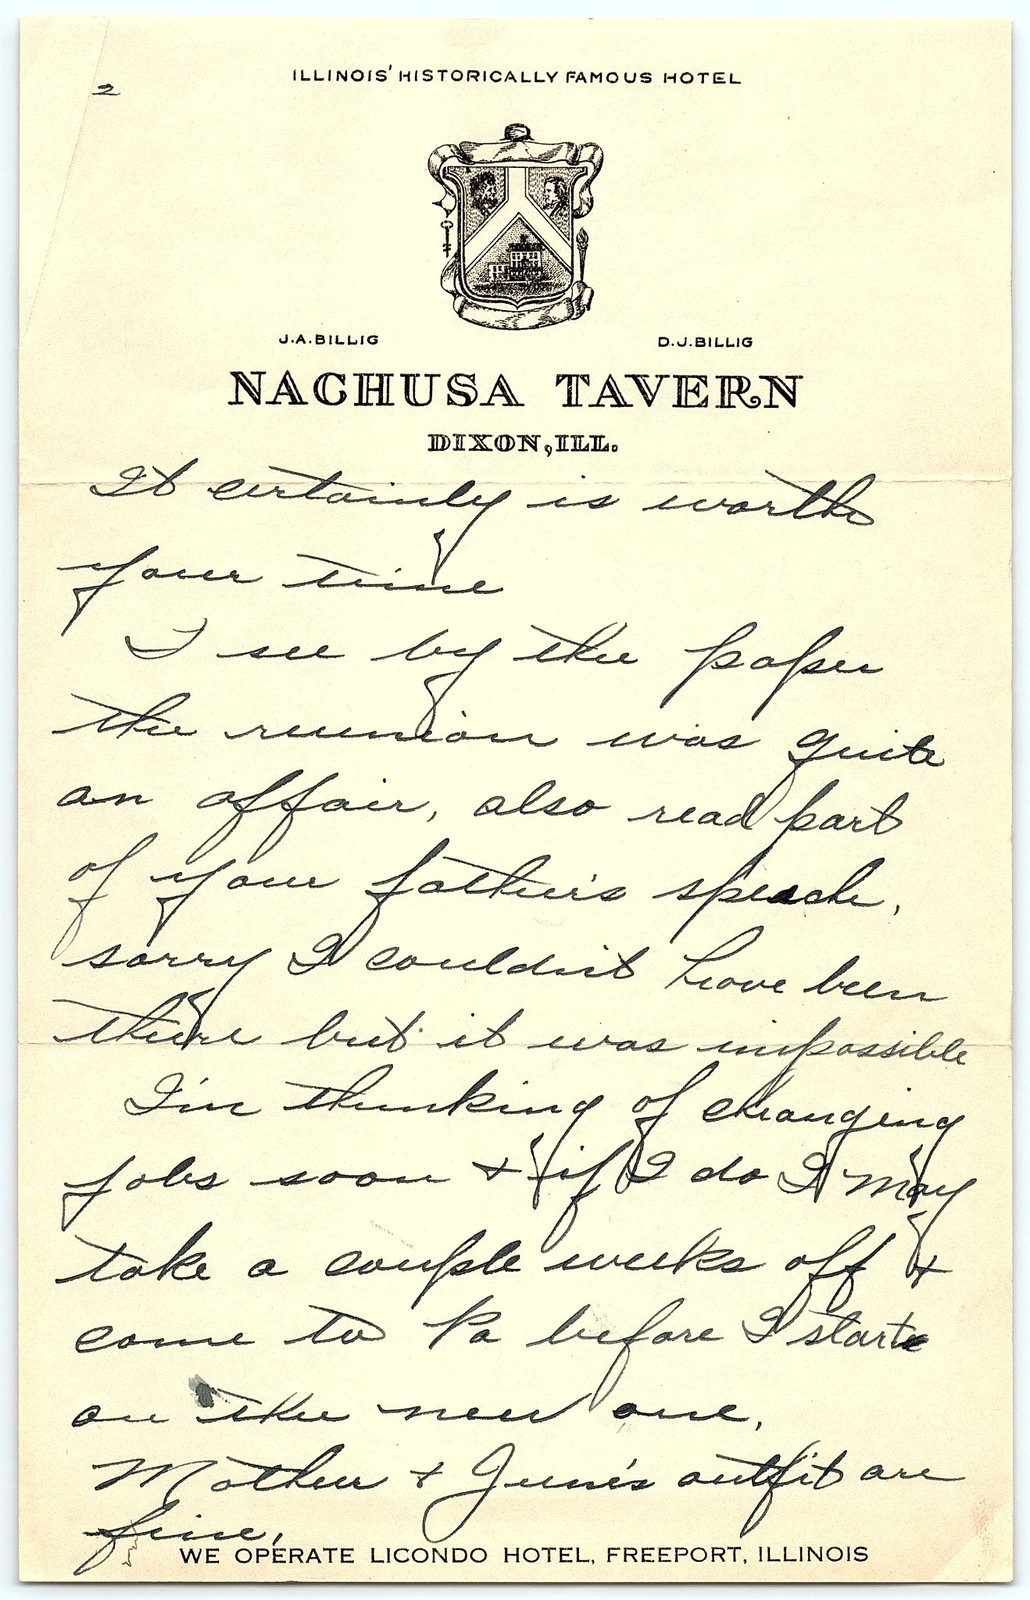 2
ILLINOIS' HISTORICALLY FAMOUS HOTEL
J.A.BILLIG D.J.BILLIG
NACHUSA TAVERN
DIXON, ILL.
It certainly is worth
your time
I see by the paper
the reunion was quite
an affair, also read part
of your father's speech,
sorry I couldn't have been
there but it was impossible
I'm thinking of changing
jobs soon + if I do I may
take a couple weeks off +
come to Pa before I start
on the new one.
Mother + June's outfit are
fine.
WE OPERATE LICONDO HOTEL, FREEPORT, ILLINOIS